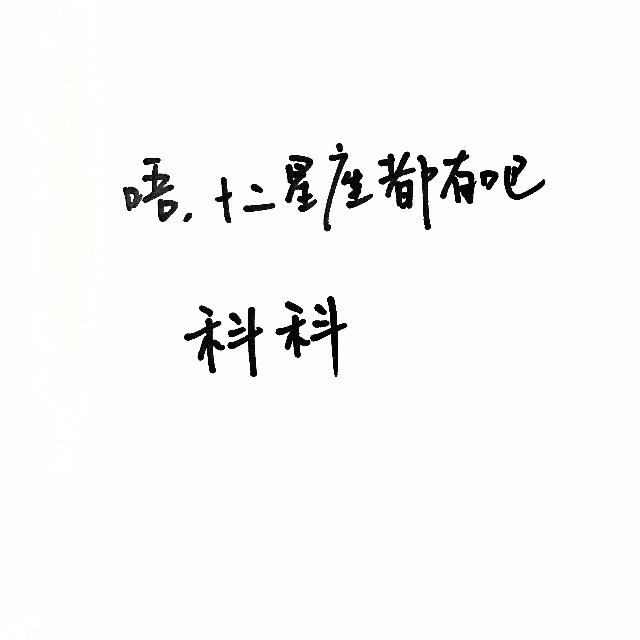 唔,十二星座都有吧
科科